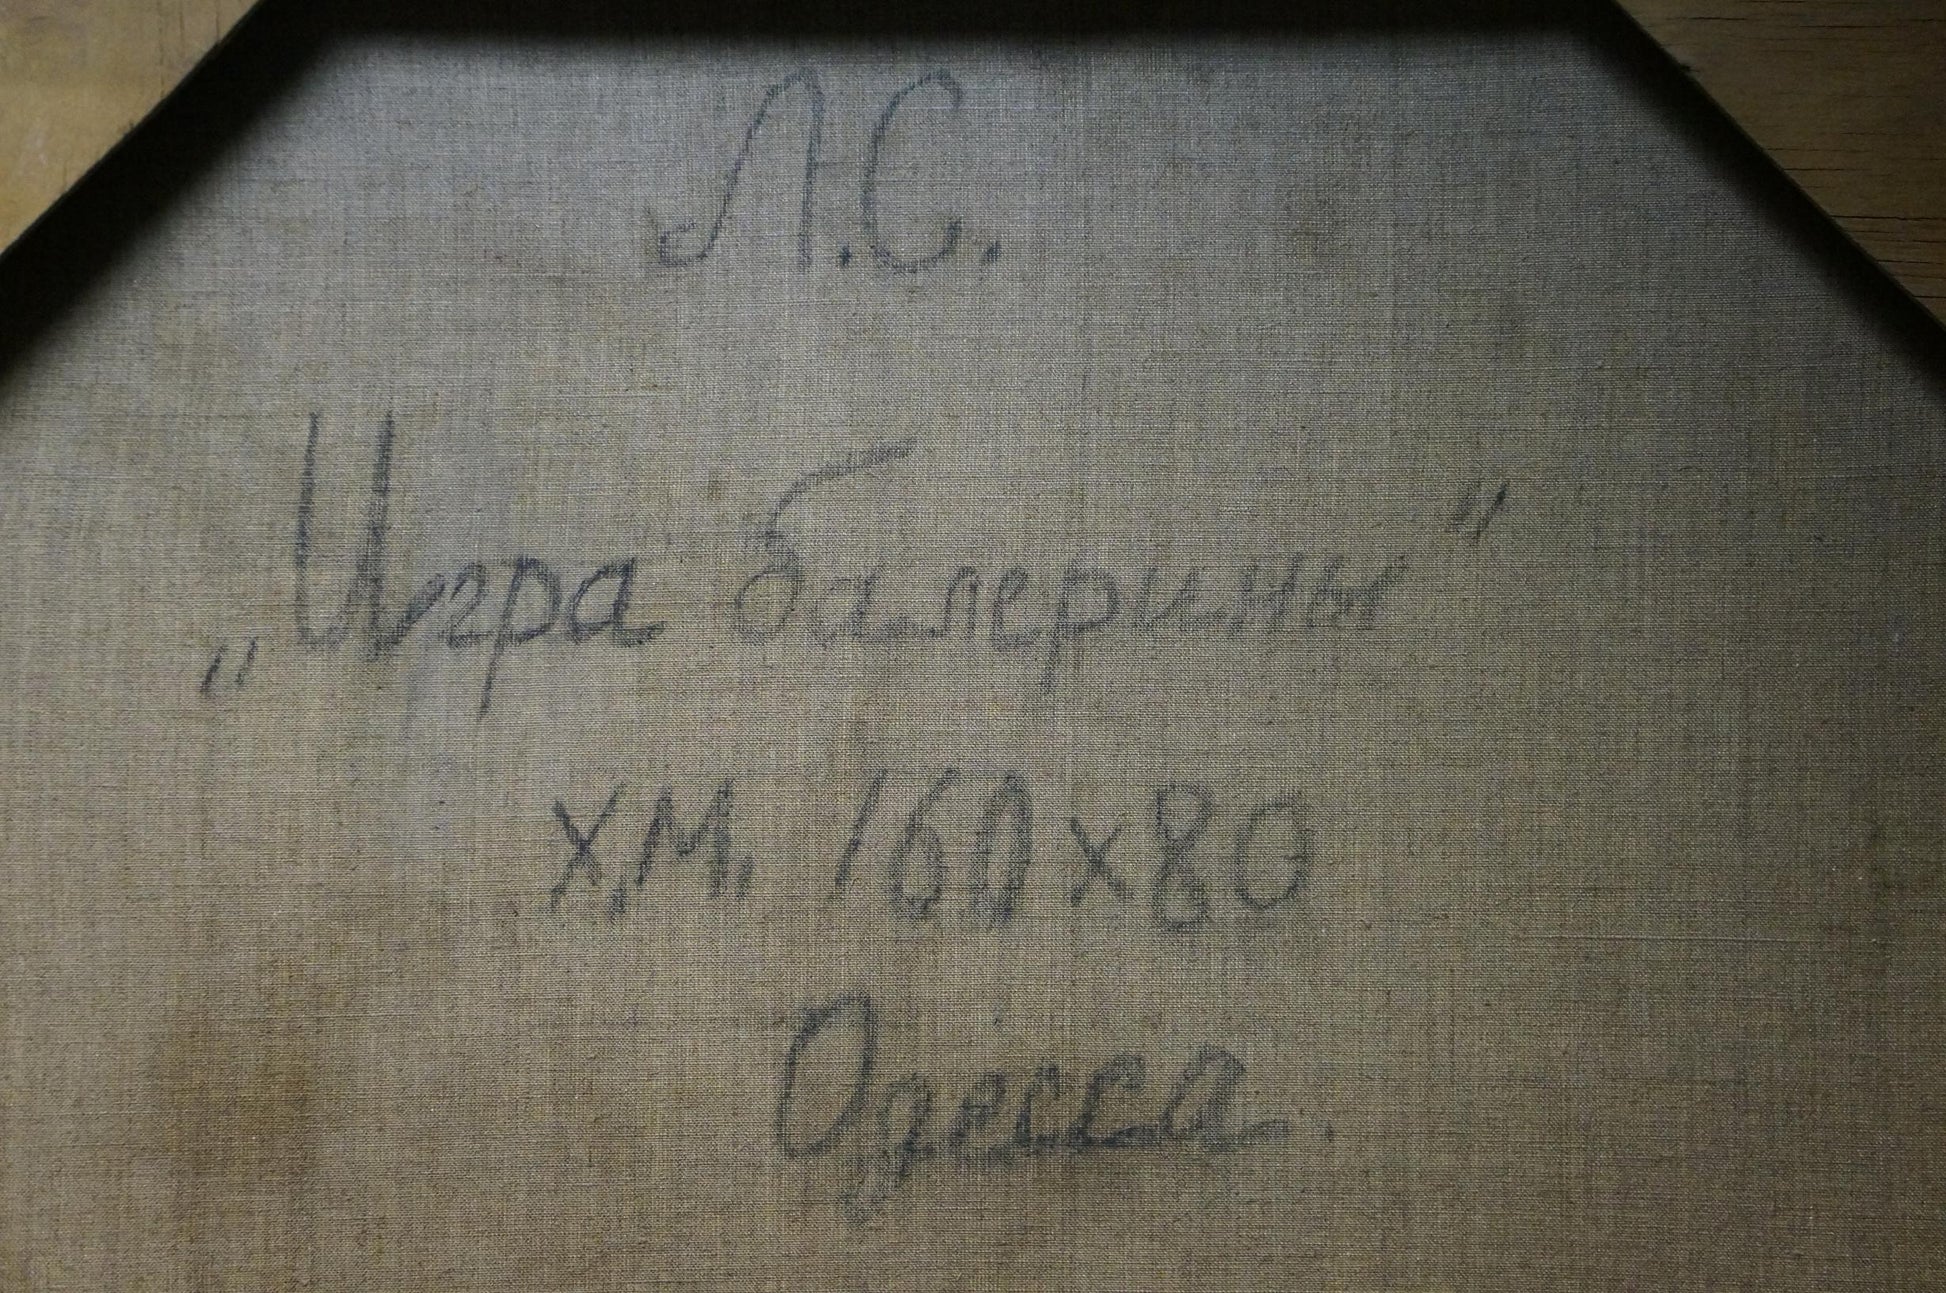 Л.С.
„Игра балерины"
х.м. 160х80
Одесса.